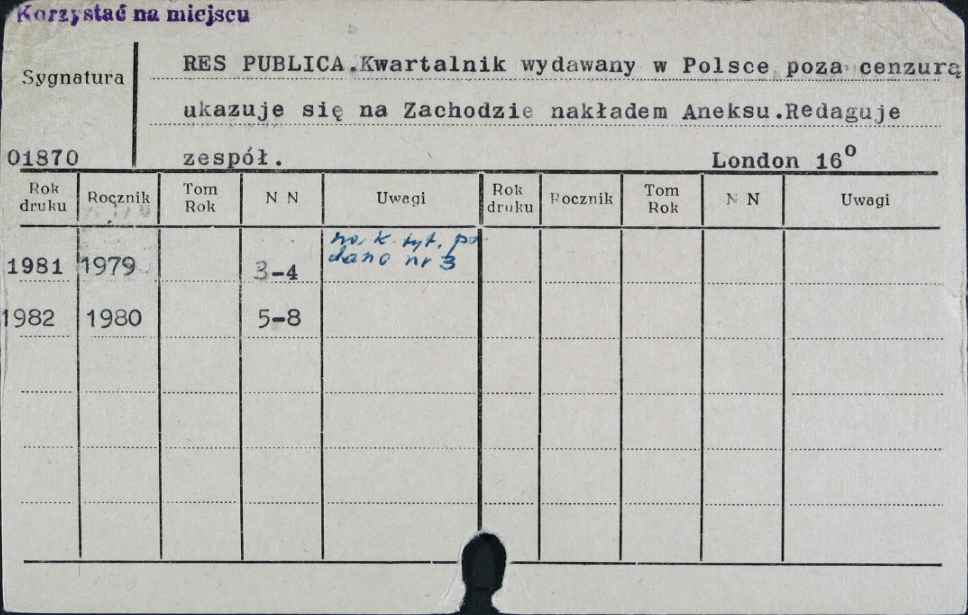 Korzystać na miejscu
Sygnatura
RES PUBLICA.Kwartalnik wydawany w Polsce poza cenzurą
ukazuje się na Zachodzie nakładem Aneksu.Redaguje
01870 zespół. London 16⁰
Rok druku Rocznik Tom Rok N N Uwagi Rok druku Rocznik Tom Rok N N Uwagi
na k. tyt. po
1981 1979 3-4 dano nr 3
1982 1980 5-8